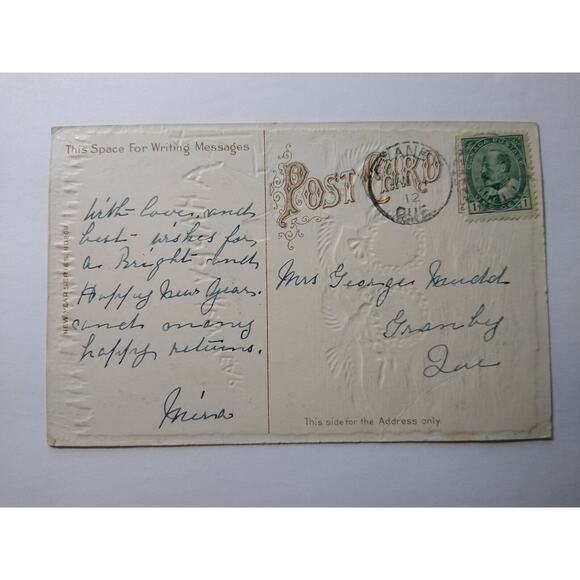 This Space For Writing Messages
With love and
best wishes for
a Bright and
Happy New Year.
and many
happy returns.
Mina
NEW YEAR SERIES
POST CARD
12
QUE.
CANADA POSTAGE
1 1
Mrs George Mudd
Granby
Que
This side for the Address only.